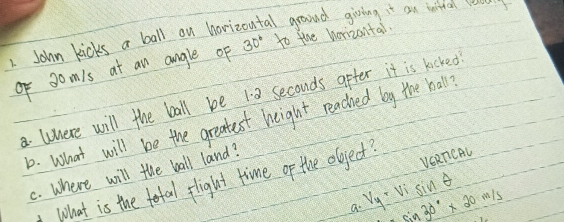 1. John kicks a ball on horizontal ground giving it an initial
of 20 m/s at an angle of 30° to the horizontal.
a. Where will the ball be 1.2 seconds after it is kicked?
b. What will be the greatest height reached by the ball?
c. Where will the ball land?
What is the total flight time of the object?
VERTICAL
a. Vy = Vi sin θ
sin 30° x 20 m/s